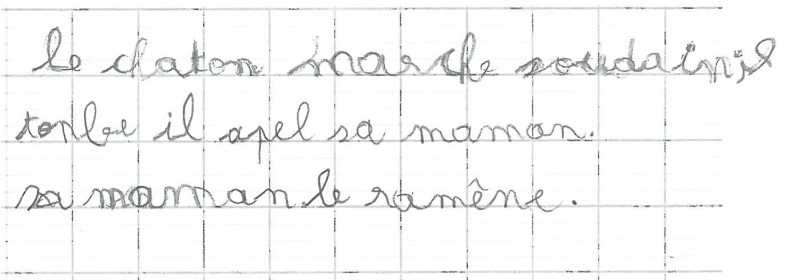 le chaton marche soudain,il
tonbe il apel sa maman.
sa maman le ramène.